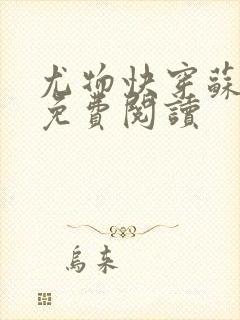 尤物快穿蘇
免費閱讀
烏来